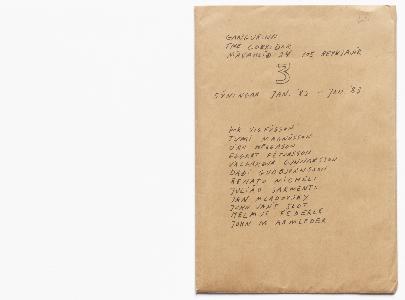 GANGURINN
THE CORRIDOR
MÁVAHLÍÐ 24 105 REYKJAVÍK
3
SÝNINGAR JAN. '82 - JAN. '83
ÞÓR VIGFÚSSON
TUMI MAGNÚSSON
HELGASON
EGGERT PÉTURSSON
GUNNARSSON
DAÐI GUÐBJÖRNSSON
RENATO MICHELI
JULIÃO SARMENTO
JAN MLADOVSKY
JOHN VAN'T SLOT
HELMUT FEDERLE
JOHN M ARMLEDER